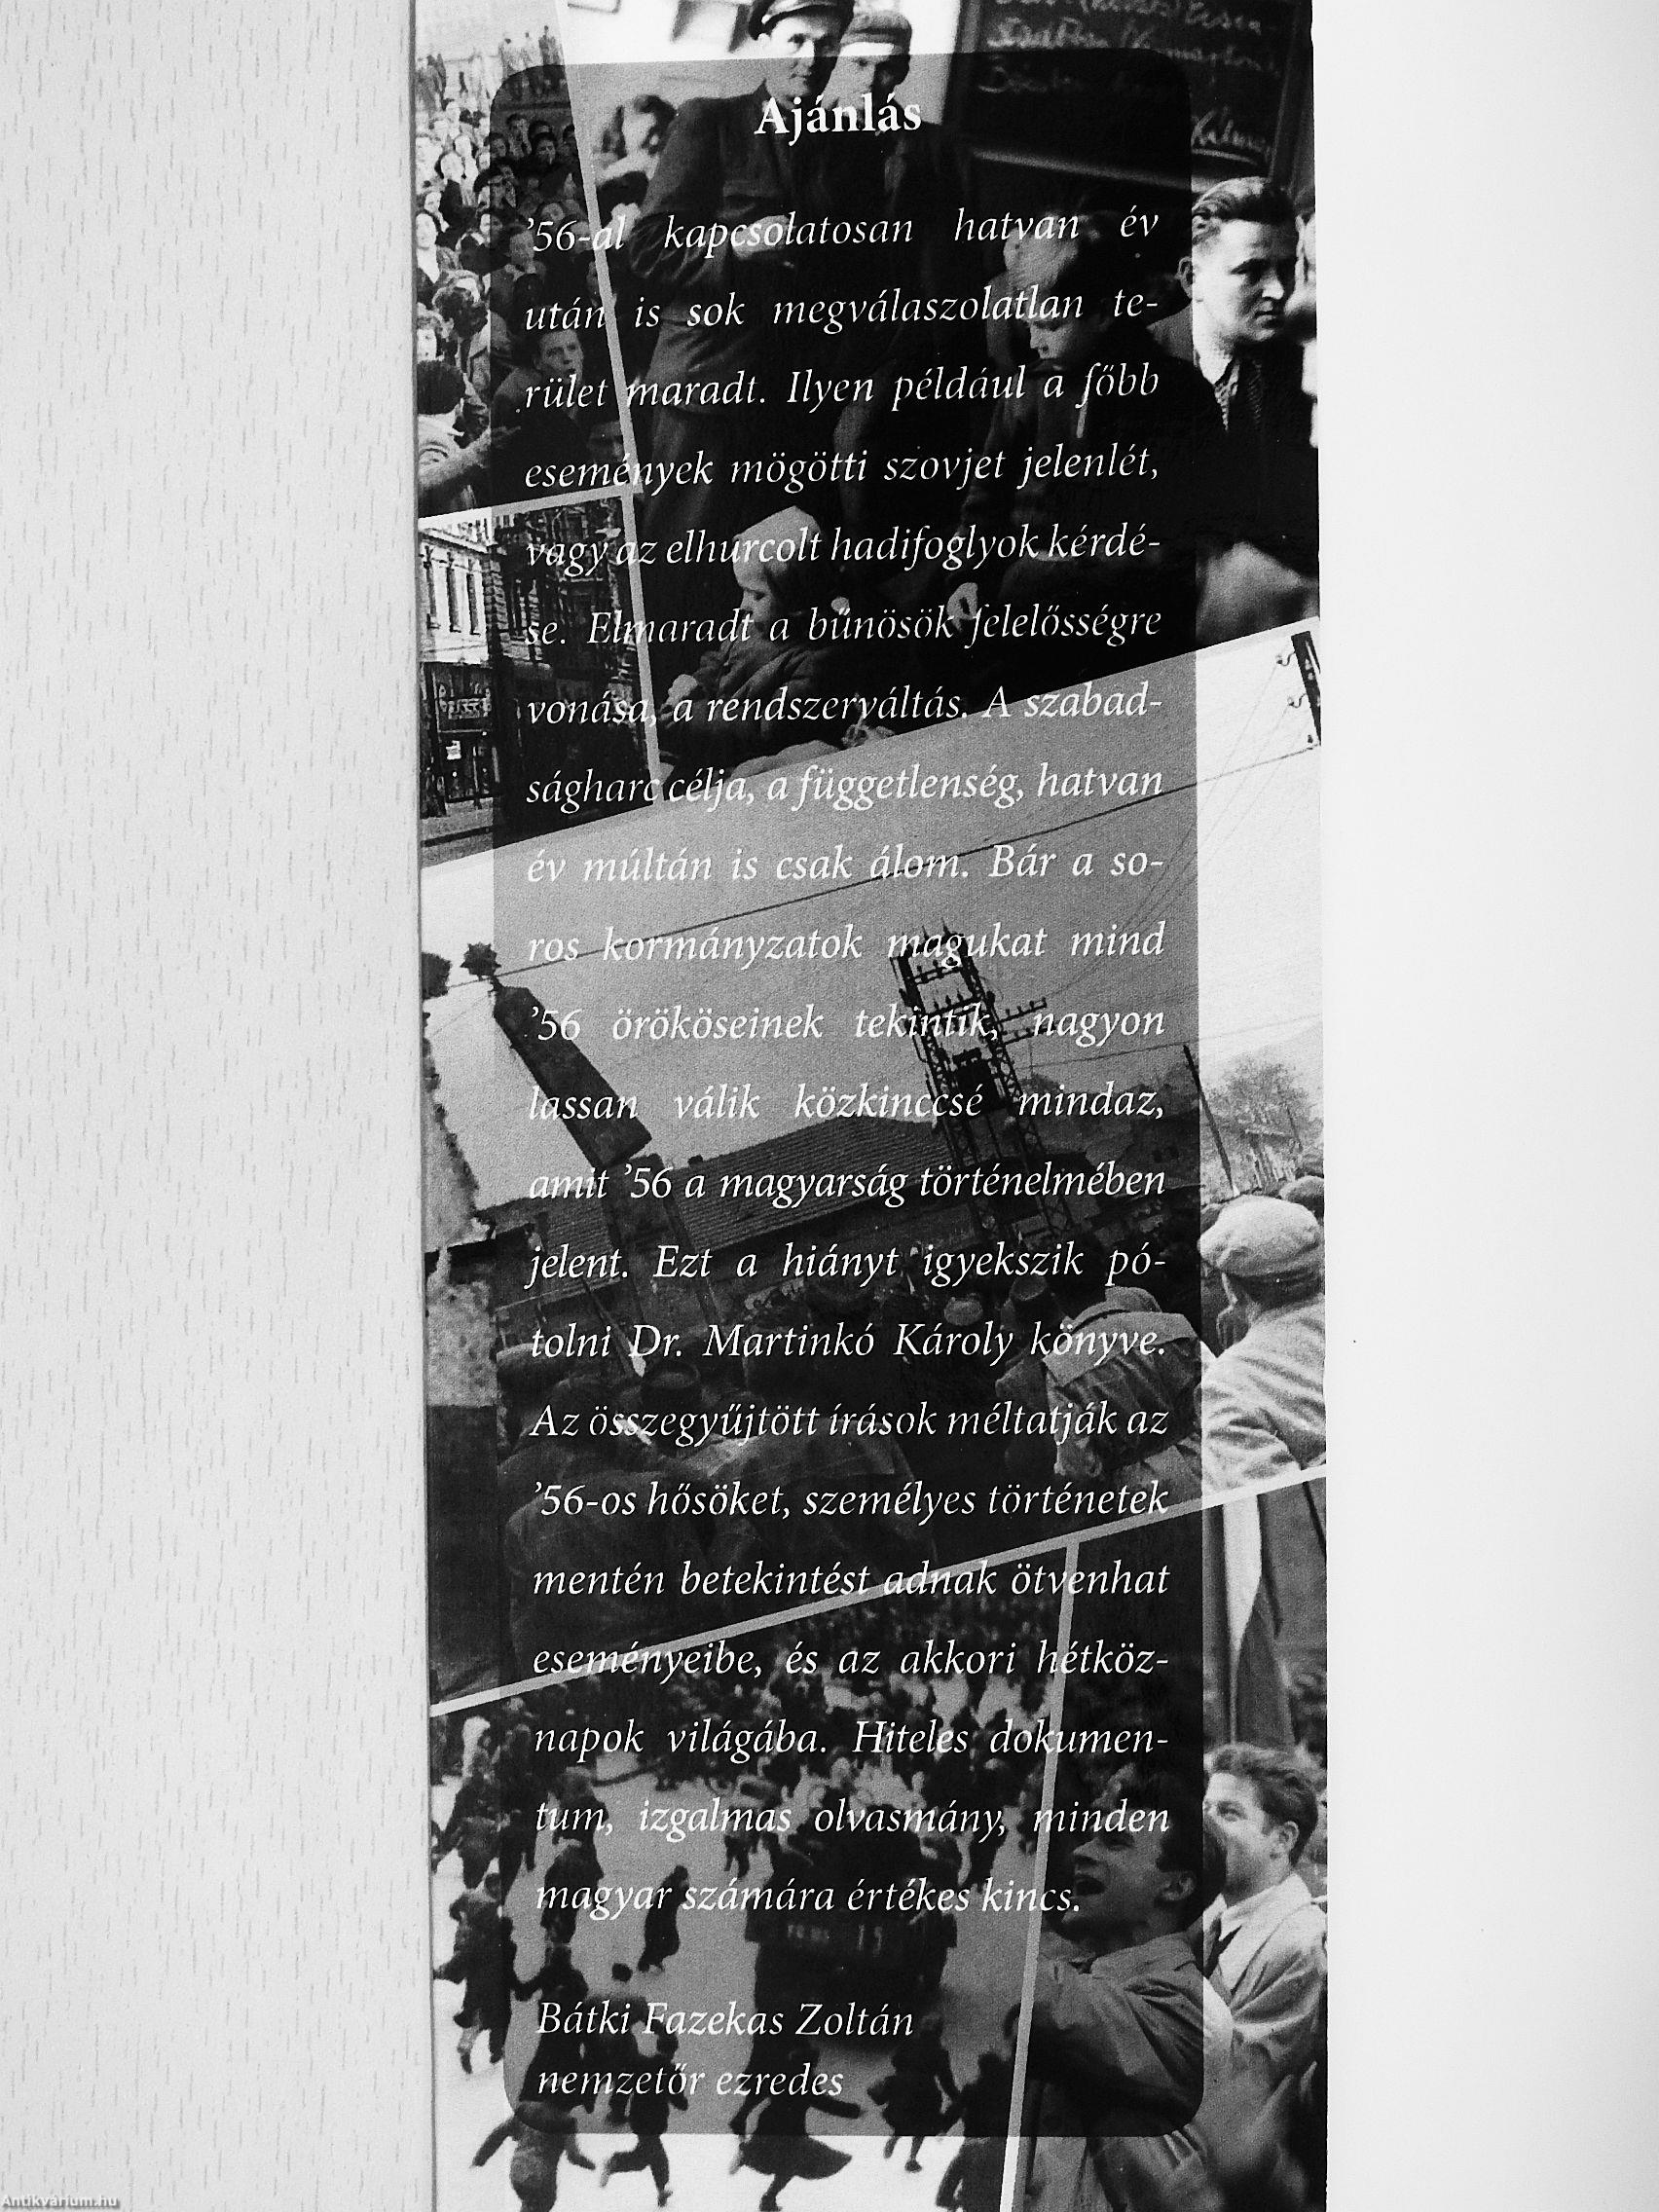 Ajánlás
’56-al kapcsolatosan hatvan év
után is sok megválaszolatlan te-
rület maradt. Ilyen például a főbb
események mögötti szovjet jelenlét,
vagy az elhurcolt hadifoglyok kérdé-
se. Elmaradt a bűnösök felelősségre
vonása, a rendszerváltás. A szabad-
ságharc célja, a függetlenség, hatvan
év múltán is csak álom. Bár a so-
ros kormányzatok magukat mind
’56 örököseinek tekintik, nagyon
lassan válik közkinccsé mindaz,
amit ’56 a magyarság történelmében
jelent. Ezt a hiányt igyekszik pó-
tolni Dr. Martinkó Károly könyve.
Az összegyűjtött írások méltatják az
’56-os hősöket, személyes történetek
mentén betekintést adnak ötvenhat
eseményeibe, és az akkori hétköz-
napok világába. Hiteles dokumen-
tum, izgalmas olvasmány, minden
magyar számára értékes kincs.
Bátki Fazekas Zoltán
nemzetőr ezredes
Antikvárium.hu